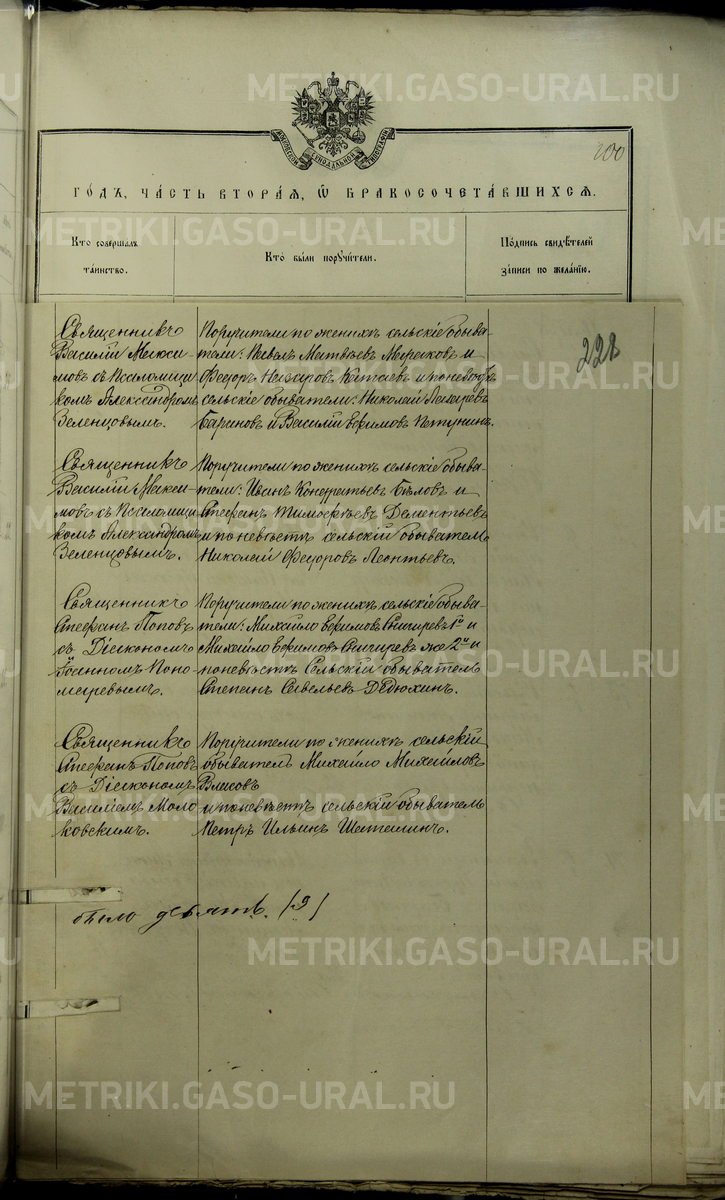 METRIKI.GASO-URAL.RU
200
МОСКОВСКОЙ СѴНОДАЛЬНОЙ ТИПОГРАФІИ
ГО́ДЪ, ЧА́СТЬ ВТОРА́Я, Ѿ БРАКОСОЧЕТА́ВШИХСЯ.
Кто̀ совершалъ та́инство.
Кто̀ бы́ли порꙋчи́тели.
По́дпись свидѣ́телей за́писи по жела́нїю.
228
Священникъ
Василій Макси-
мовъ съ Псаломщи
комъ Александромъ
Зеленцовымъ.
Поручители по женихѣ сельскіе обыва-
тели: Павелъ Матвѣевъ и
Федоръ Назаровъ Китаевъ и по невѣстѣ
сельскіе обыватели: Николай Лазаревъ
Бариновъ и Василій Ефимовъ Петунинъ.
Священникъ
Василій Макси-
мовъ съ Псаломщи
комъ Александромъ
Зеленцовымъ.
Поручители по женихѣ сельскіе обыва-
тели: Иванъ Кондратьевъ Бѣловъ и
Стефанъ Тимофѣевъ Дементьевъ
и по невѣстѣ сельскій обыватель
Николай Федоровъ Леонтьевъ.
Священникъ
Стефанъ Поповъ
съ Діакономъ
Іоанномъ Поно-
маревымъ.
Поручители по женихѣ сельскіе обыва-
тели: Михайло Ефимовъ Снигиревъ 1й и
Михайло Ефимовъ Снигиревъ же 2й и
по невѣстѣ Сельскій обыватель
Степанъ Савельевъ Дѣдюхинъ.
Священникъ
Стефанъ Поповъ
съ Діакономъ
Василіемъ Моло
ковскимъ.
Поручители по женихѣ сельскій
обыватель Михайло Михайловъ
Власовъ
и по невѣстѣ сельскій обыватель
Петръ Ильинъ Шаталинъ.
было девять (9)